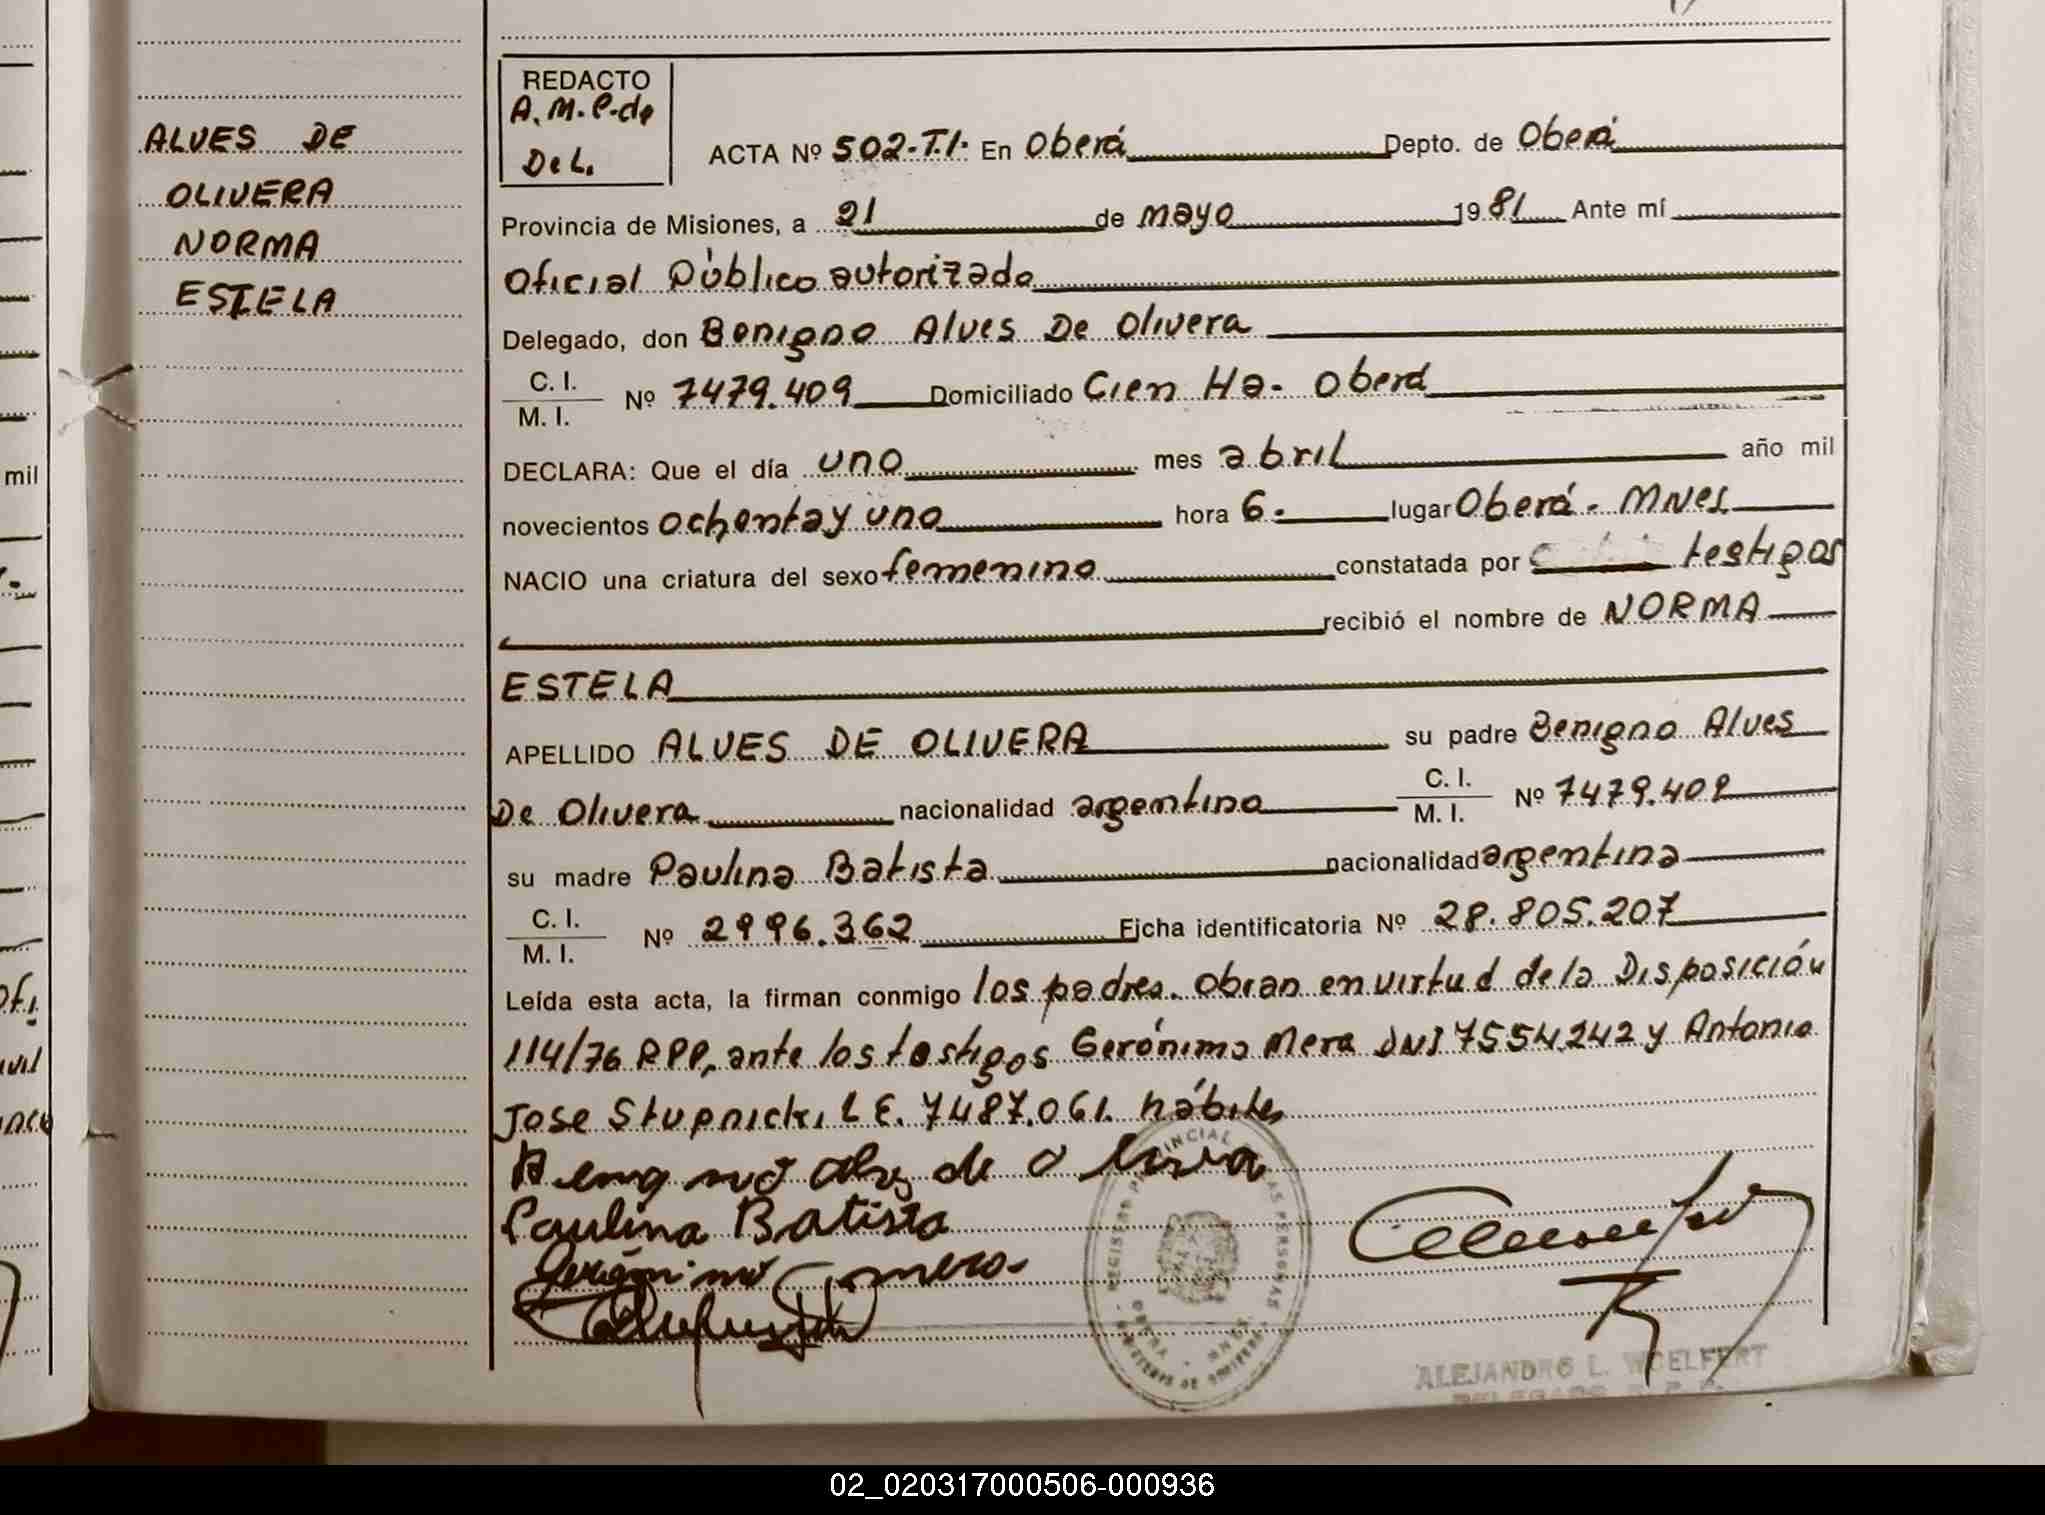 ALVES DE
OLIVERA
NORMA
ESTELA
REDACTO
A.M.P.de
De L.
ACTA Nº 502-T.I. En Oberá Depto. de Oberá
Provincia de Misiones, a 21 de mayo 1981 Ante mí
Oficial Público autorizado
Delegado, don Benigno Alves De Olivera
C. I.
M. I.
Nº 7479.409 Domiciliado Cien Ha- Oberá
DECLARA: Que el día uno mes abril año mil
novecientos ochenta y uno hora 6.- lugar Oberá - MNes
NACIO una criatura del sexo femenino constatada por testigos
recibió el nombre de NORMA
ESTELA
APELLIDO ALVES DE OLIVERA su padre Benigno Alves
De Olivera nacionalidad argentina C. I.
M. I. Nº 7479.409
su madre Paulina Batista nacionalidad argentina
C. I.
M. I.
Nº 2996.362 Ficha identificatoria Nº 28.805.207
Leída esta acta, la firman conmigo los padres. Obran en virtud de la Disposición
114/76 RPP, ante los testigos Gerónimo Mera DNI 7554.242 y Antonio
Jose Stupnicki L E. 7487.061. hábiles
Paulina Batista
REGISTRO PROVINCIAL DE LAS PERSONAS
ALEJANDRO L. WOELFERT
mil
02_020317000506-000936